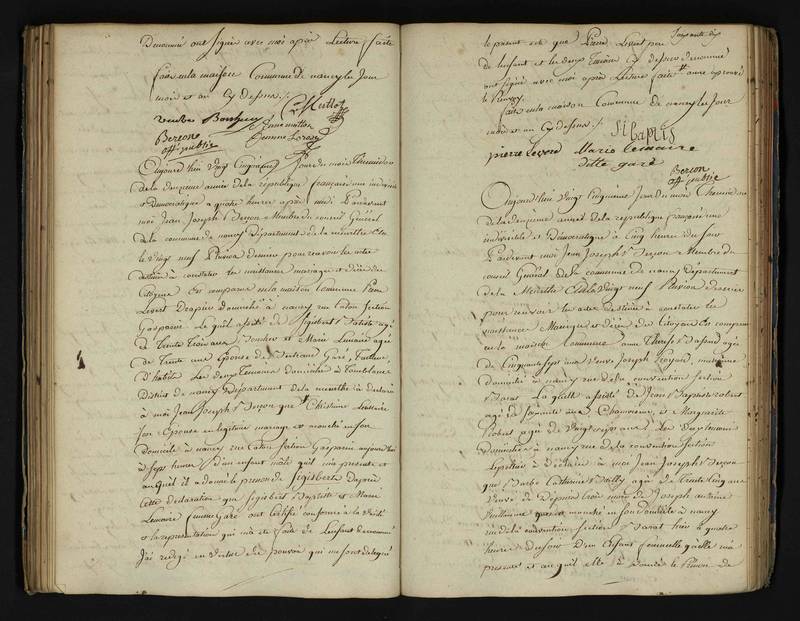 Denommé ont signés avec moi après Lecture faite
fait en la maison Commune de nancy les Jour
mois et an Cy dessus ./.
Mullot
Berzon
off. publie
Aujourd'hui Vingt Cinquième Jour du mois Thermidor
de la deuxieme année de la république française une indivisible
et Democratique a quatre heures après midi Pardevant
moi Jean Joseph Berzon Membre du conseil Général
de la commune de nancy Département de la meurthe Elu
le Vingt neuf Pluviose dernier pour recevoir les actes
destinés à constater les naissances mariages et décès des
Citoyens Est comparu en la maison Commune Pierre
Levert Drapier Domicilié à nancy rue Caton Section
Gasparin Lequel assisté de Sigisbert Batiste agé
de Trente Trois ans, et Marie Lemaire agée
de Trente ans Epouse de Garé, Tailleur
d'habits Les deux Temoins domiciliés à Tomblaine
District de nancy Département de la meurthe à déclaré
à moi Jean Joseph Berzon que Christine
son Epouse en legitime mariage est accouchée en son
domicile à nancy rue Caton Section Gasparin aujourd'hui
à sept heures d'un enfant mâle qu'il m'a presenté et
auquel il a donné le prenom de Sigisberte D'après
Cette déclaration que Sigisbert Baptiste et Marie
Lemaire femme Garé ont Certifié conforme à la Vérité
et la representation qui m'a été faite de L'enfant denommé
J'ai redigé en Vertu des pouvoirs qui me sont delegués
Soixante dix
le présent acte que Pierre Levert pere
de L'enfant et les deux Temoins Cy dessus denommés
ont signés avec moi après Lecture faite
fait en la maison Commune de nancy les Jour
mois et an Cy dessus ./.
Si baptis
pierre Levere Marie lemaire
ditte garé
Berzon
off. publie
Aujourd'hui Vingt Cinquième Jour du mois Thermidor
de la deuxième année de la république française une
indivisible et Démocratique à Cinq heures du soir
Pardevant moi Jean Joseph Berzon Membre du
conseil Général de la commune de nancy Département
de la Meurthe Elu le Vingt neuf Pluviose dernier
pour recevoir les actes destinés à constater les
naissances Mariages et décès des Citoyens Est comparue
en la maison Commune anne Therese agée
de Cinquante sept ans Veuve Joseph
domiciliée à nancy rue de la convention Section
Marat Laquelle assistée de Jean Baptiste robert
agé de soixante ans et Marguerite
Robert agée de Vingt sept ans Les deux Temoins
domiciliés à nancy rue de la convention Section
Lepelletier à déclaré à moi Jean Joseph Berzon
que Barbe Catherine agée de Trente Cinq ans
Veuve de Depuis trois mois de Joseph antoine
Guillaume est accouchée en son domicile à nancy
rue de la convention Section Marat hier à quatre
heures du soir D'un Enfant femmelle qu'elle m'a
presenté et auquel elle à donnée le Prenom de